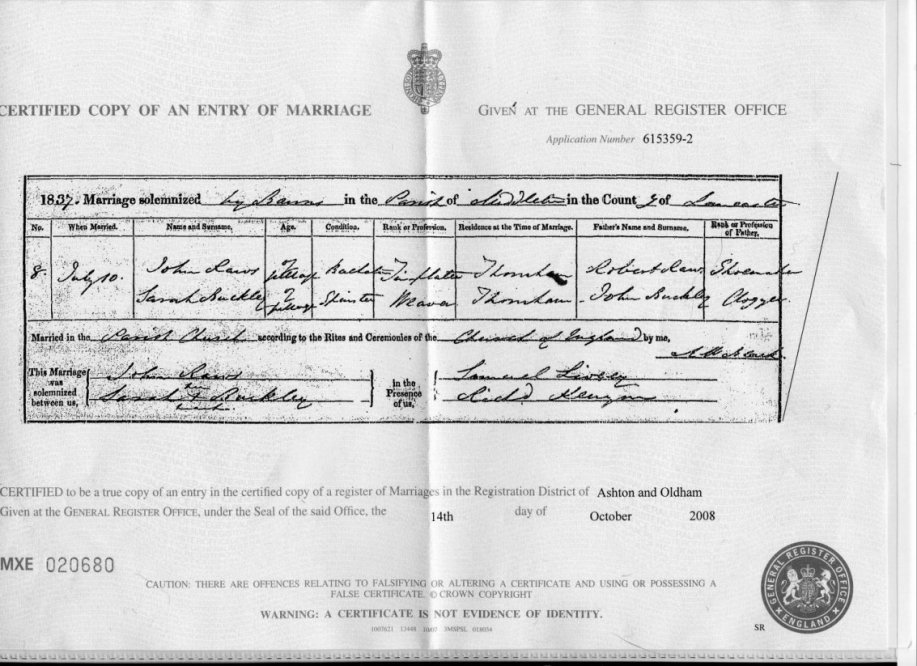 CERTIFIED COPY OF AN ENTRY OF MARRIAGE
GIVEN AT THE GENERAL REGISTER OFFICE
Application Number 615359-2
1837. Marriage solemnized by Banns in the Parish of Middleton in the County of Lancaster
No. When Married. Name and Surname. Age. Condition. Rank or Profession. Residence at the Time of Marriage. Father's Name and Surname. Rank or Profession of Father.
8. July 10. John Laws of full age Bachelor Tin plater Thornham Robert Laws Shoemaker
Sarah Buckley of full age Spinster Weaver Thornham John Buckley Clogger
Married in the Parish Church according to the Rites and Ceremonies of the Church of England by me,
This Marriage was solemnized between us,
John Laws
Sarah X Buckley
in the Presence of us,
Samuel Livsey
Richd Kenyon
CERTIFIED to be a true copy of an entry in the certified copy of a register of Marriages in the Registration District of Ashton and Oldham
Given at the GENERAL REGISTER OFFICE, under the Seal of the said Office, the 14th day of October 2008
MXE 020680
CAUTION: THERE ARE OFFENCES RELATING TO FALSIFYING OR ALTERING A CERTIFICATE AND USING OR POSSESSING A
FALSE CERTIFICATE. © CROWN COPYRIGHT
WARNING: A CERTIFICATE IS NOT EVIDENCE OF IDENTITY.
GENERAL REGISTER OFFICE
ENGLAND
SR